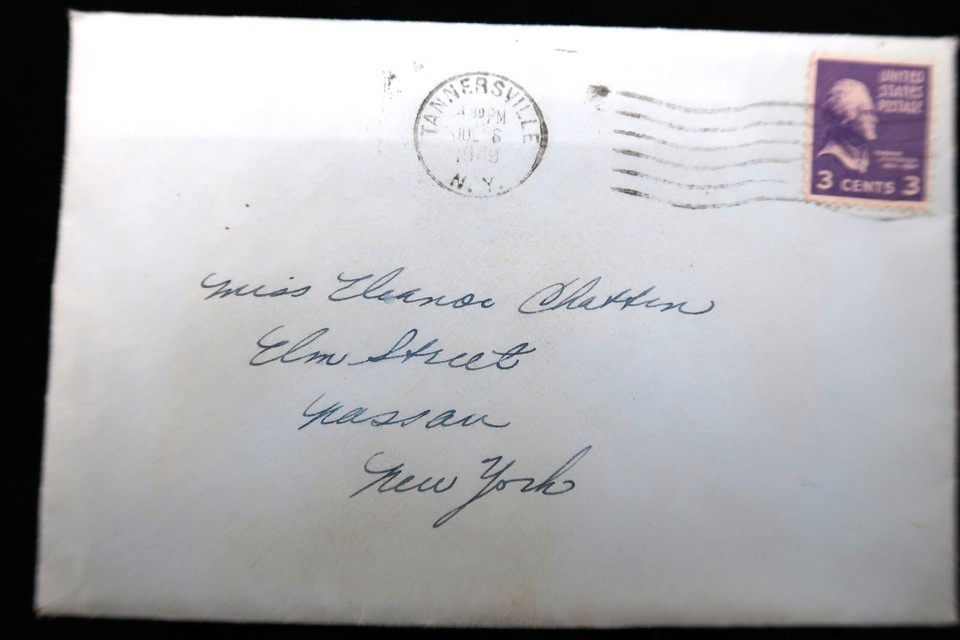 TANNERSVILLE
PM
JUL 6
1949
N. Y.
UNITED
STATES
POSTAGE
3 CENTS 3
Miss Eleanor Chatten
Elm Street
Nassau
New York